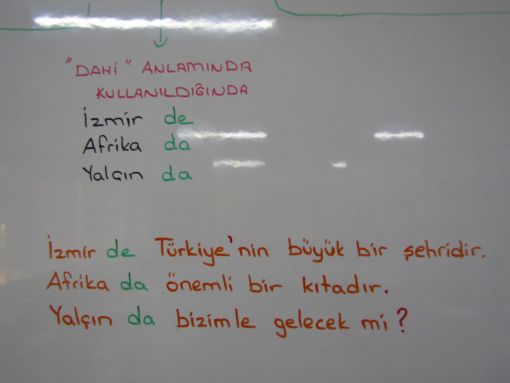 "DAHİ" ANLAMINDA
KULLANILDIĞINDA
İzmir de
Afrika da
Yalçın da
İzmir de Türkiye'nin büyük bir şehridir.
Afrika da önemli bir kıtadır.
Yalçın da bizimle gelecek mi?